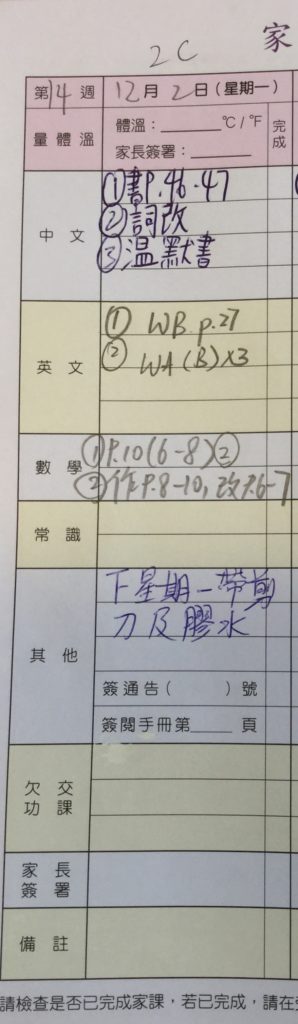 2C
家
第14週 12月2日(星期一)
量體溫 體溫:______°C/°F 完成
家長簽署:______
中文 ①書P.46-47
②詞改
③溫默書
英文 ① WB p.27
② WA(B)x3
數學 ①P.10(6-8)②
②作P.8-10,改P.6-7
常識
其他 下星期一帶剪
刀及膠水
簽通告( )號
簽閱手冊第_____頁
欠交功課
家長簽署
備註
請檢查是否已完成家課,若已完成,請在